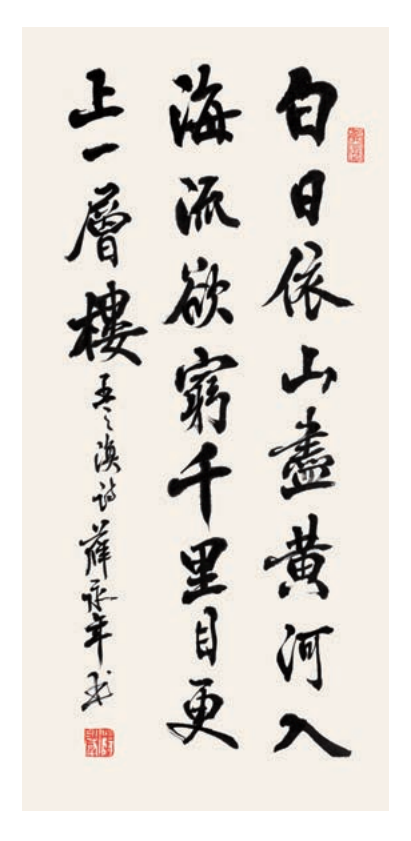 白日依山盡黄河入
海流欲窮千里目更
上一層樓
王之渙詩薛永年书